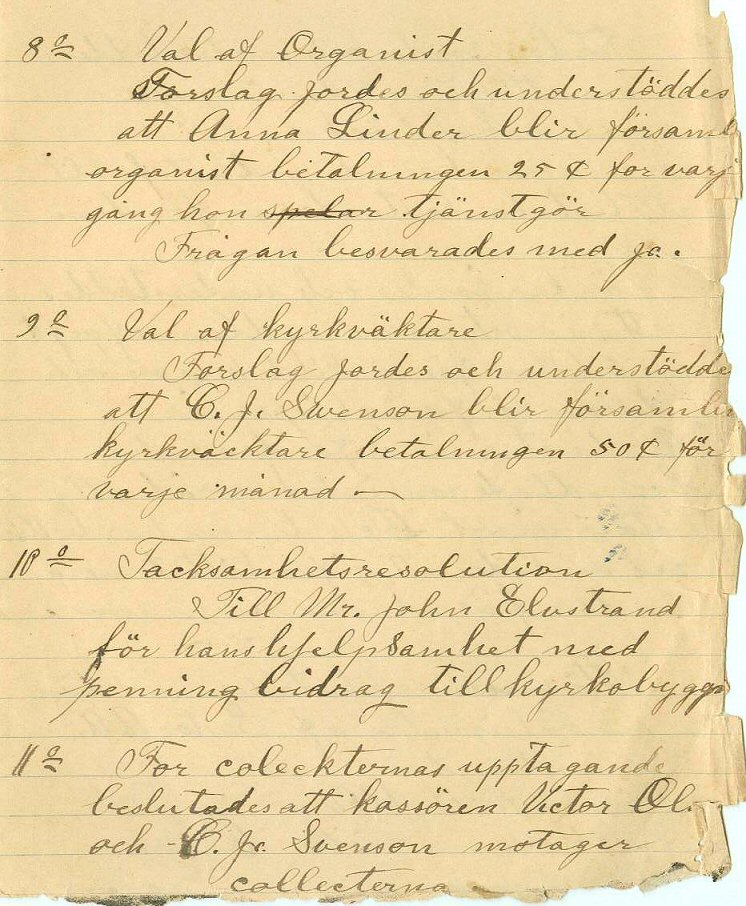 8º Val af Organist
Forslag jordes och understöddes
att Anna Linder blir församl
organist betalningen 25 ¢ for varj
gång hon spelar tjänstgör
Frågan besvarades med ja.
9º Val af kyrkväktare
Forslag jordes och understödde
att C. J. Swenson blir församlin
kyrkväcktare betalningen 50 ¢ för
varje månad —
10º Tacksamhetsresolution
Till Mr. John Elvstrand
för hans hjelpsamhet med
penning bidrag till kyrkobygg
11º For coleckternas upptagande
beslutades att kassören Victor
och C. J. Svenson motager
collecterna